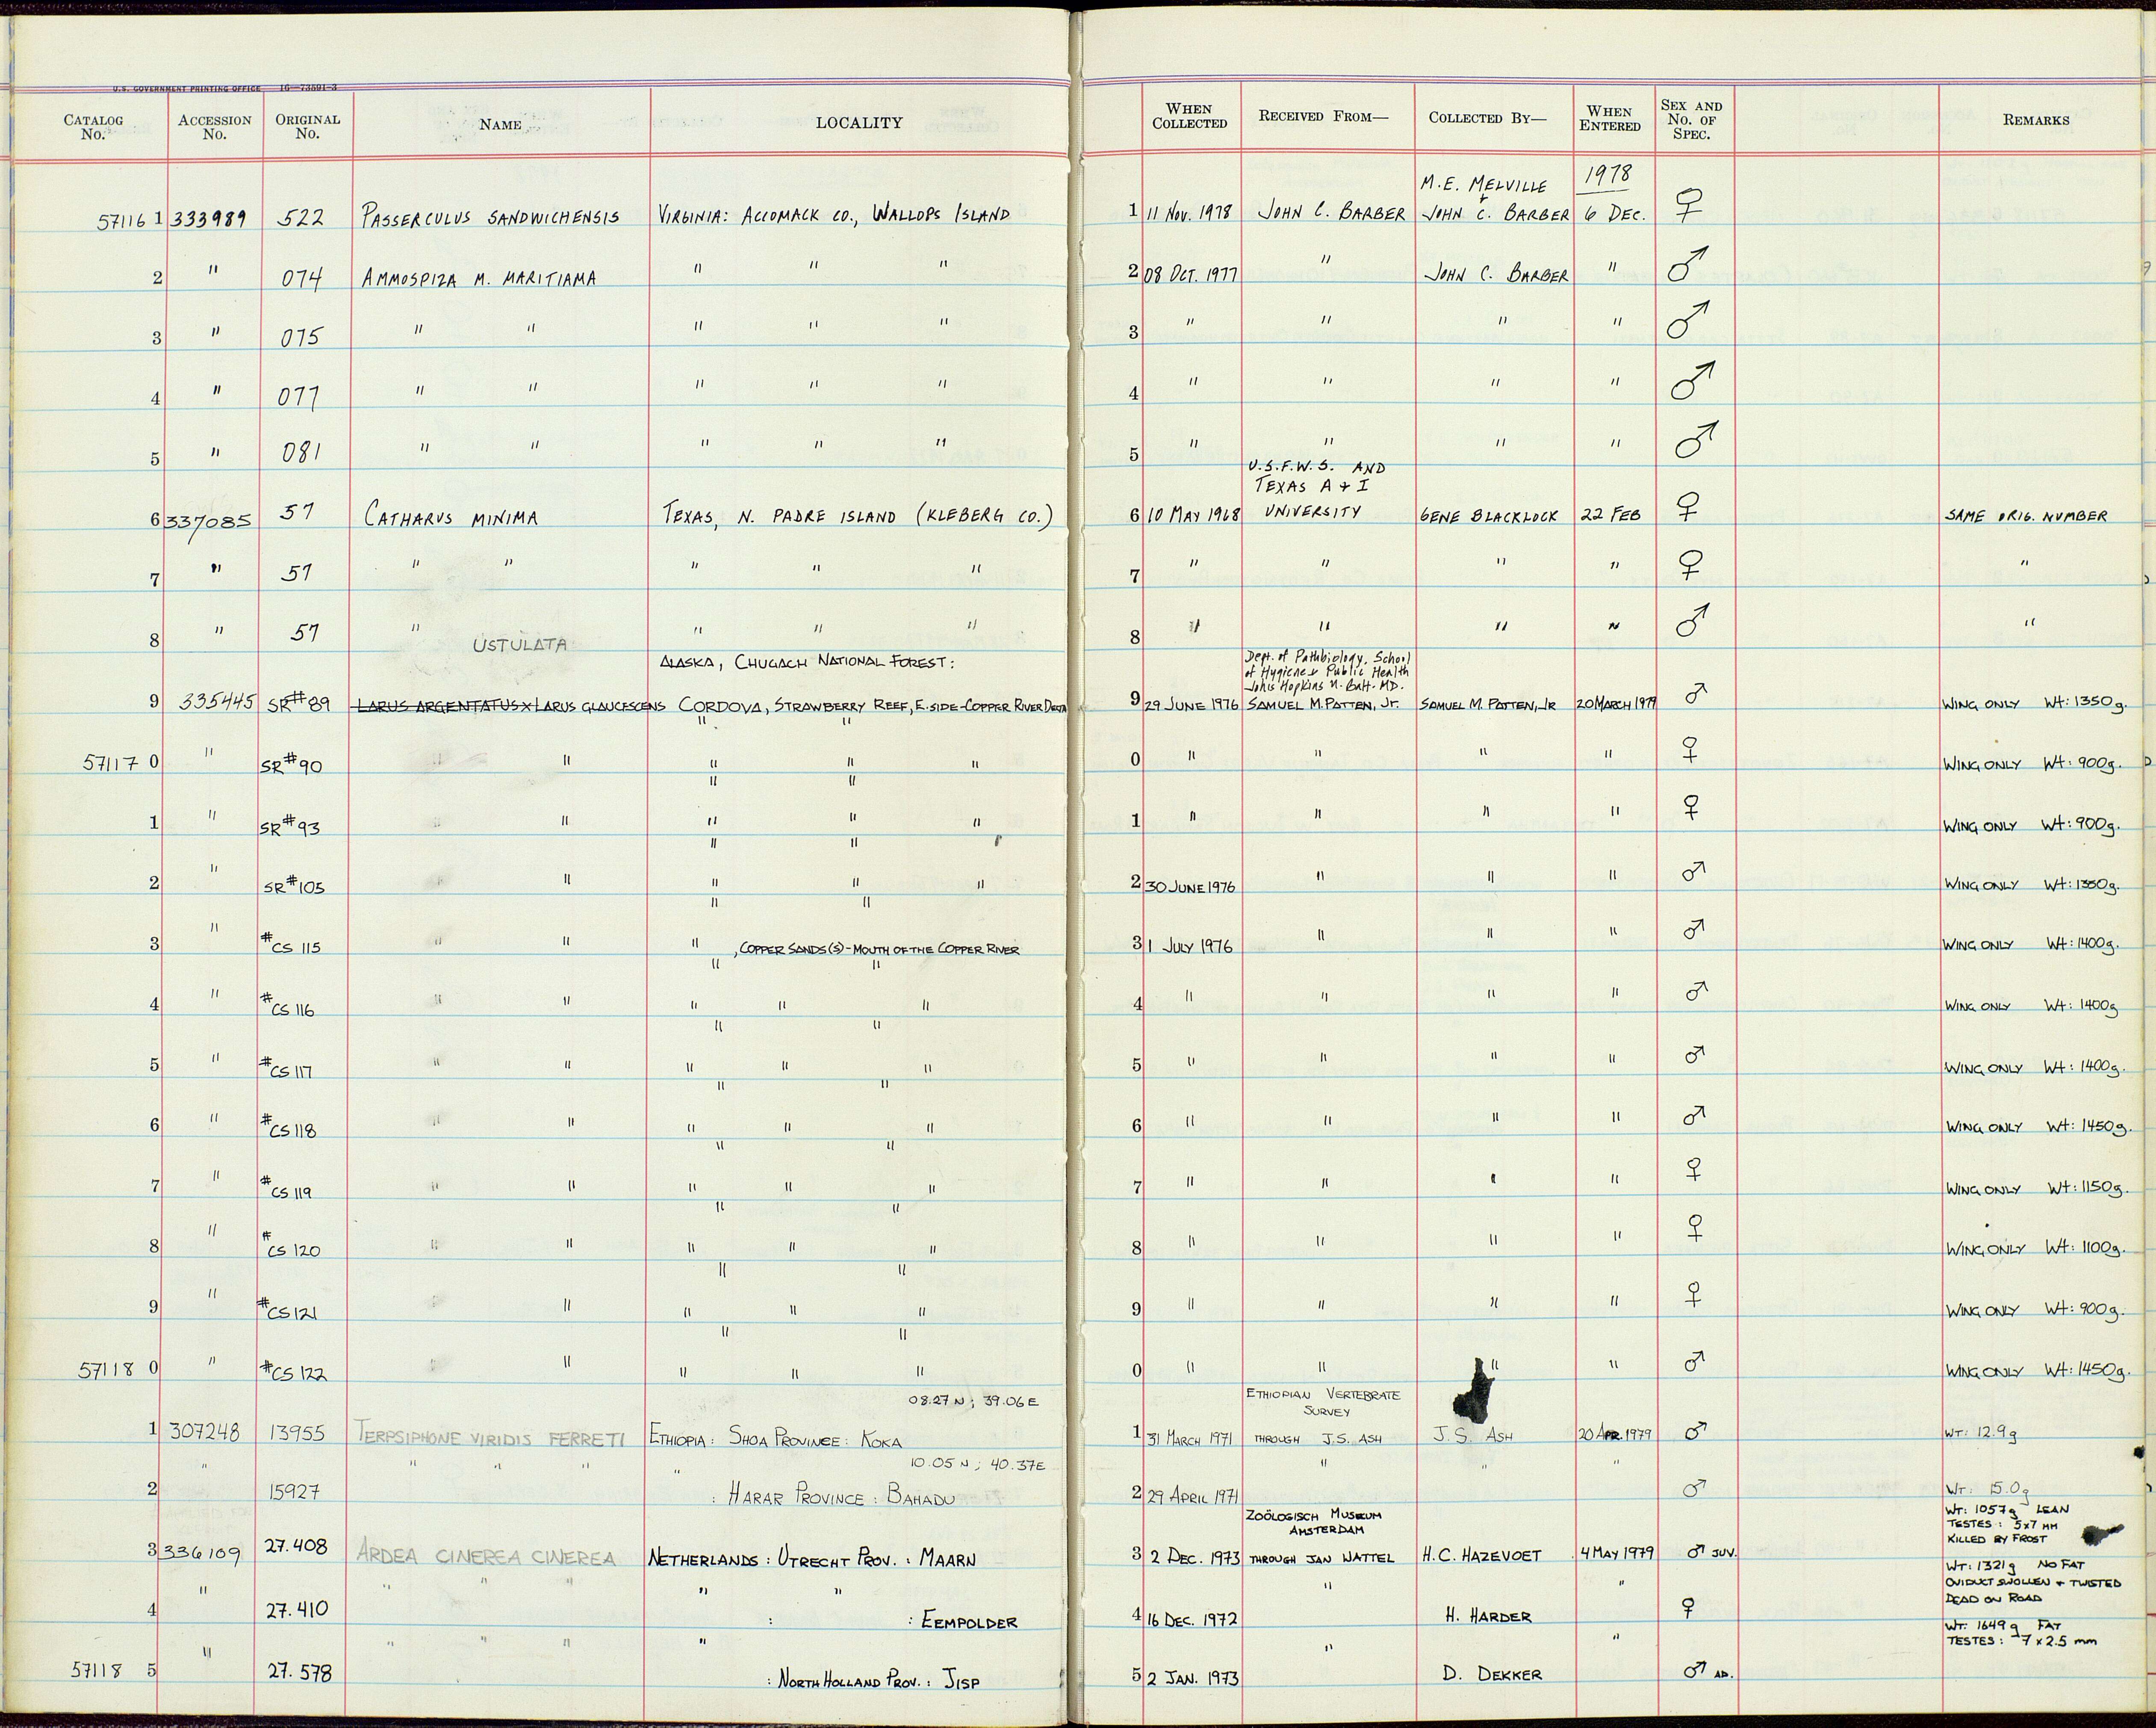 U.S. GOVERNMENT PRINTING OFFICE 16—73591-3
CATALOG No. ACCESSION No. ORIGINAL No. NAME LOCALITY WHEN COLLECTED RECEIVED FROM— COLLECTED BY— WHEN ENTERED SEX AND No. OF SPEC. REMARKS
M.E. MELVILLE 1978
57116 1 333989 522 PASSERCULUS SANDWICHENSIS VIRGINIA: ACCOMACK CO., WALLOPS ISLAND 1 11 NOV. 1978 JOHN C. BARBER & JOHN C. BARBER 6 DEC. ♀
2 " 074 AMMOSPIZA M. MARITIAMA " " " 2 08 OCT. 1977 " JOHN C. BARBER " ♂
3 " 075 " " " " " 3 " " " " ♂
4 " 077 " " " " " 4 " " " " ♂
5 " 081 " " " " " 5 " " " " ♂
U.S.F.W.S. AND
TEXAS A & I
6 337085 57 CATHARUS MINIMA TEXAS, N. PADRE ISLAND (KLEBERG CO.) 6 10 MAY 1968 UNIVERSITY GENE BLACKLOCK 22 FEB ♀ SAME ORIG. NUMBER
7 " 57 " " " " " 7 " " " " ♀ "
8 " 57 " USTULATA " " " 8 " " " " ♂ "
ALASKA, CHUGACH NATIONAL FOREST: Dept. of Pathbiology, School
of Hygiene & Public Health
Johns Hopkins U. Balt. MD.
9 335445 SR#89 LARUS ARGENTATUS X LARUS GLAUCESCENS CORDOVA, STRAWBERRY REEF, E. SIDE-COPPER RIVER DELTA 9 29 JUNE 1976 SAMUEL M. PATTEN, Jr. SAMUEL M. PATTEN, JR 20 MARCH 1979 ♂ WING ONLY Wt: 1350g.
" "
57117 0 " SR#90 " " " " " 0 " " " " ♀ WING ONLY Wt: 900g.
" "
1 " SR#93 " " " " " 1 " " " " ♀ WING ONLY Wt: 900g.
" "
2 " SR#105 " " " " " 2 30 JUNE 1976 " " " ♂ WING ONLY Wt: 1350g.
" "
3 " #CS 115 " " " , COPPER SANDS (S) - MOUTH OF THE COPPER RIVER 3 1 JULY 1976 " " " ♂ WING ONLY Wt: 1400g.
" "
4 " #CS 116 " " " " " 4 " " " " ♂ WING ONLY Wt: 1400g
" "
5 " #CS 117 " " " " " 5 " " " " ♂ WING ONLY Wt: 1400g.
" "
6 " #CS 118 " " " " " 6 " " " " ♂ WING ONLY Wt: 1450g.
" "
7 " #CS 119 " " " " " 7 " " " " ♀ WING ONLY Wt: 1150g.
" "
8 " #CS 120 " " " " " 8 " " " " ♀ WING ONLY Wt: 1100g.
" "
9 " #CS 121 " " " " " 9 " " " " ♀ WING ONLY Wt: 900g.
" "
57118 0 " #CS 122 " " " " " 0 " " " " ♂ WING ONLY Wt: 1450g.
08.27 N ; 39.06 E ETHIOPIAN VERTEBRATE
SURVEY
1 307248 13955 TERPSIPHONE VIRIDIS FERRETI ETHIOPIA : SHOA PROVINCE : KOKA 1 31 MARCH 1971 THROUGH J.S. ASH J.S. ASH 20 APR. 1979 ♂ WT: 12.9g
10.05 N ; 40.37 E
2 " 15927 " " " " : HARAR PROVINCE : BAHADU 2 29 APRIL 1971 " " " ♂ WT: 15.0g
ZOÖLOGISCH MUSEUM
AMSTERDAM
WT: 1057g LEAN
TESTES : 5x7 MM
KILLED BY FROST
3 336109 27.408 ARDEA CINEREA CINEREA NETHERLANDS : UTRECHT PROV. : MAARN 3 2 DEC. 1973 THROUGH JAN WATTEL H.C. HAZEVOET 4 MAY 1979 ♂ JUV.
WT: 1321g NO FAT
OVIDUCT SWOLLEN + TWISTED
DEAD ON ROAD
4 " 27.410 " " " " : " : EEMPOLDER 4 16 DEC. 1972 " H. HARDER " ♀
WT: 1649g FAT
TESTES : 7 x 2.5 mm
57118 5 " 27.578 " " " " : NORTH HOLLAND PROV. : JISP 5 2 JAN. 1973 " D. DEKKER " ♂ AD.